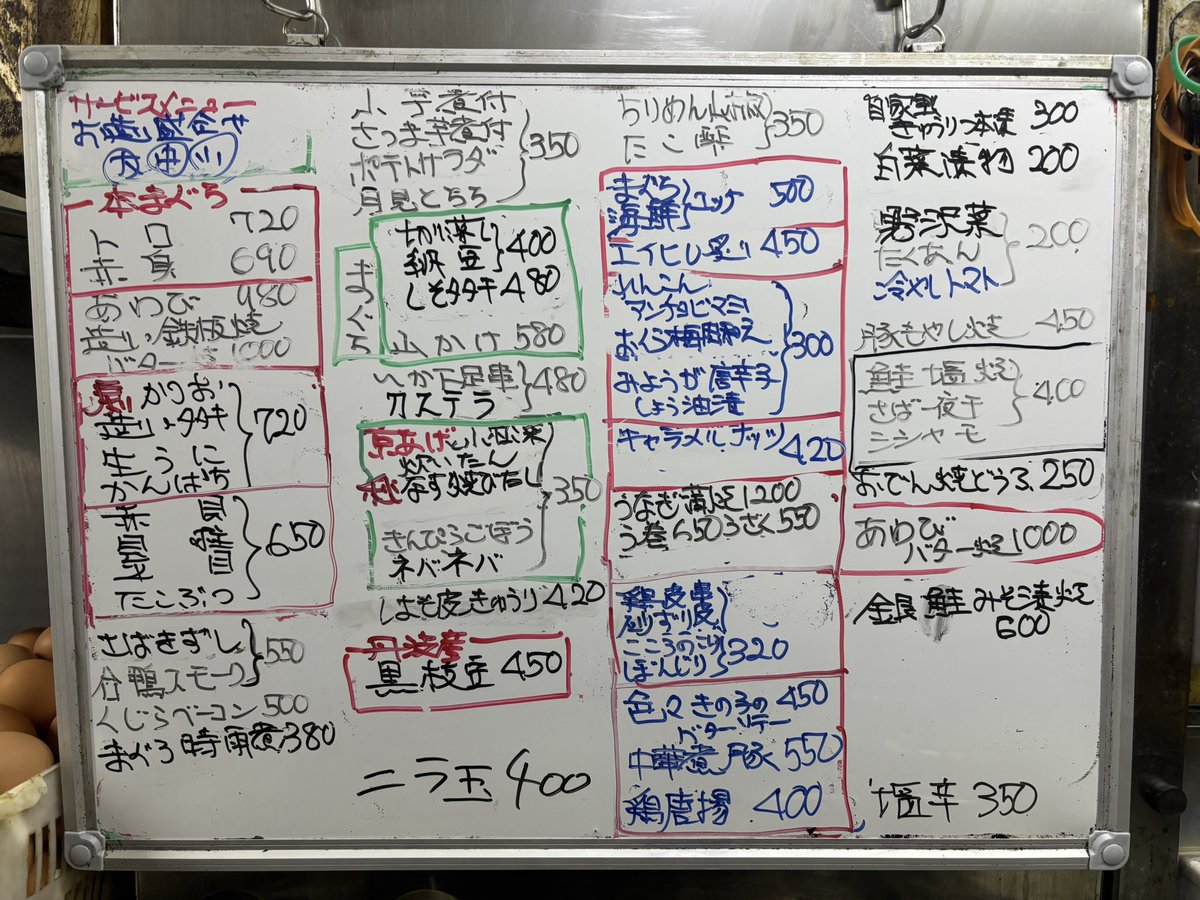 サービスメニュー
お造り盛合せ
大 中 小
本まぐろ
トロ 720
赤身 690
あわび 980
造い 鉄板焼
バター 1000
かつお
造り・タタキ
生うに
かんぱち
720
赤貝
650
たこぶつ
さばきずし
合鴨スモーク
550
くじらベーコン 500
まぐろ時雨煮 380
小芋煮付
さつま芋煮付
ポテトサラダ
月見とろろ
350
まぐろ
切り落し
納豆
400
しそタタキ 480
山かけ 580
いか下足串
カステラ
480
京あげと小松菜
炊いたん
秋なす焼びたし
きんぴらごぼう
ネバネバ
350
はも皮きゅうり 420
丹波産
黒枝豆 450
ニラ玉 400
ちりめん山椒
たこ
350
まぐろ
海鮮
ユッケ 500
エイヒレ炙り 450
れんこん
アンチョビマヨ
おくら梅肉和え
みょうが唐辛子
しょう油漬
300
キャラメルナッツ 420
うなぎ蒲焼 1200
う巻 650 うざく 550
鶏皮串
砂ずり
こころ
ぼんじり
320
色々きの子の 450
バターソテー
中華煮豚 550
鶏唐揚 400
自家製
きゅうり一本漬 300
白菜漬物 200
野沢菜
たくあん
200
冷やしトマト
豚もやし焼 450
鮭塩焼
さば一夜干
シシャモ
400
おでん焼どうふ 250
あわび
バター焼 1000
銀鮭みそ漬焼
600
塩辛 350